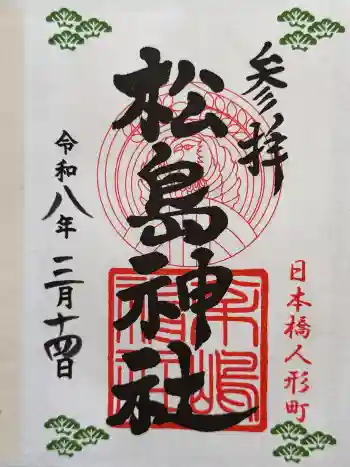 参拝
日本橋人形町
松島神社
令和八年
三月十四日